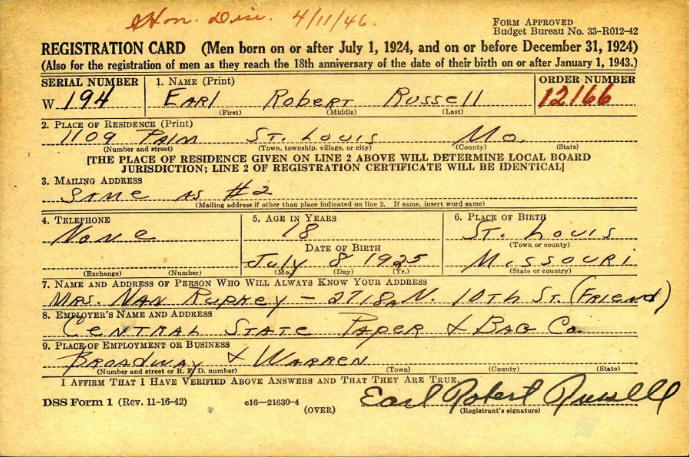 Hon. Disc. 4/11/46.
FORM APPROVED
Budget Bureau No. 33-R012-42
REGISTRATION CARD (Men born on or after July 1, 1924, and on or before December 31, 1924)
(Also for the registration of men as they reach the 18th anniversary of the date of their birth on or after January 1, 1943.)
SERIAL NUMBER 1. NAME (Print) ORDER NUMBER
W 194 EARL ROBERT RUSSELL 12166
(First) (Middle) (Last)
2. PLACE OF RESIDENCE (Print)
1109 PALM ST. LOUIS MO.
(Number and street) (Town, township, village, or city) (County) (State)
[THE PLACE OF RESIDENCE GIVEN ON LINE 2 ABOVE WILL DETERMINE LOCAL BOARD
JURISDICTION; LINE 2 OF REGISTRATION CERTIFICATE WILL BE IDENTICAL]
3. MAILING ADDRESS
SAME AS #2
(Mailing address if other than place indicated on line 2. If same, insert word same)
4. TELEPHONE 5. AGE IN YEARS 6. PLACE OF BIRTH
NONE 18 ST. LOUIS
DATE OF BIRTH (Town or county)
July 8 1925 MISSOURI
(Exchange) (Number) (Mo.) (Day) (Yr.) (State or country)
7. NAME AND ADDRESS OF PERSON WHO WILL ALWAYS KNOW YOUR ADDRESS
MRS. NAN — 2718A N. 10TH ST. (FRIEND)
8. EMPLOYER'S NAME AND ADDRESS
CENTRAL STATE PAPER & BAG CO.
9. PLACE OF EMPLOYMENT OR BUSINESS
BROADWAY & WARREN
(Number and street or R. F. D. number) (Town) (County) (State)
I AFFIRM THAT I HAVE VERIFIED ABOVE ANSWERS AND THAT THEY ARE TRUE.
DSS Form 1 (Rev. 11-16-42) c16—21630-4 Earl Robert Russell
(OVER) (Registrant's signature)